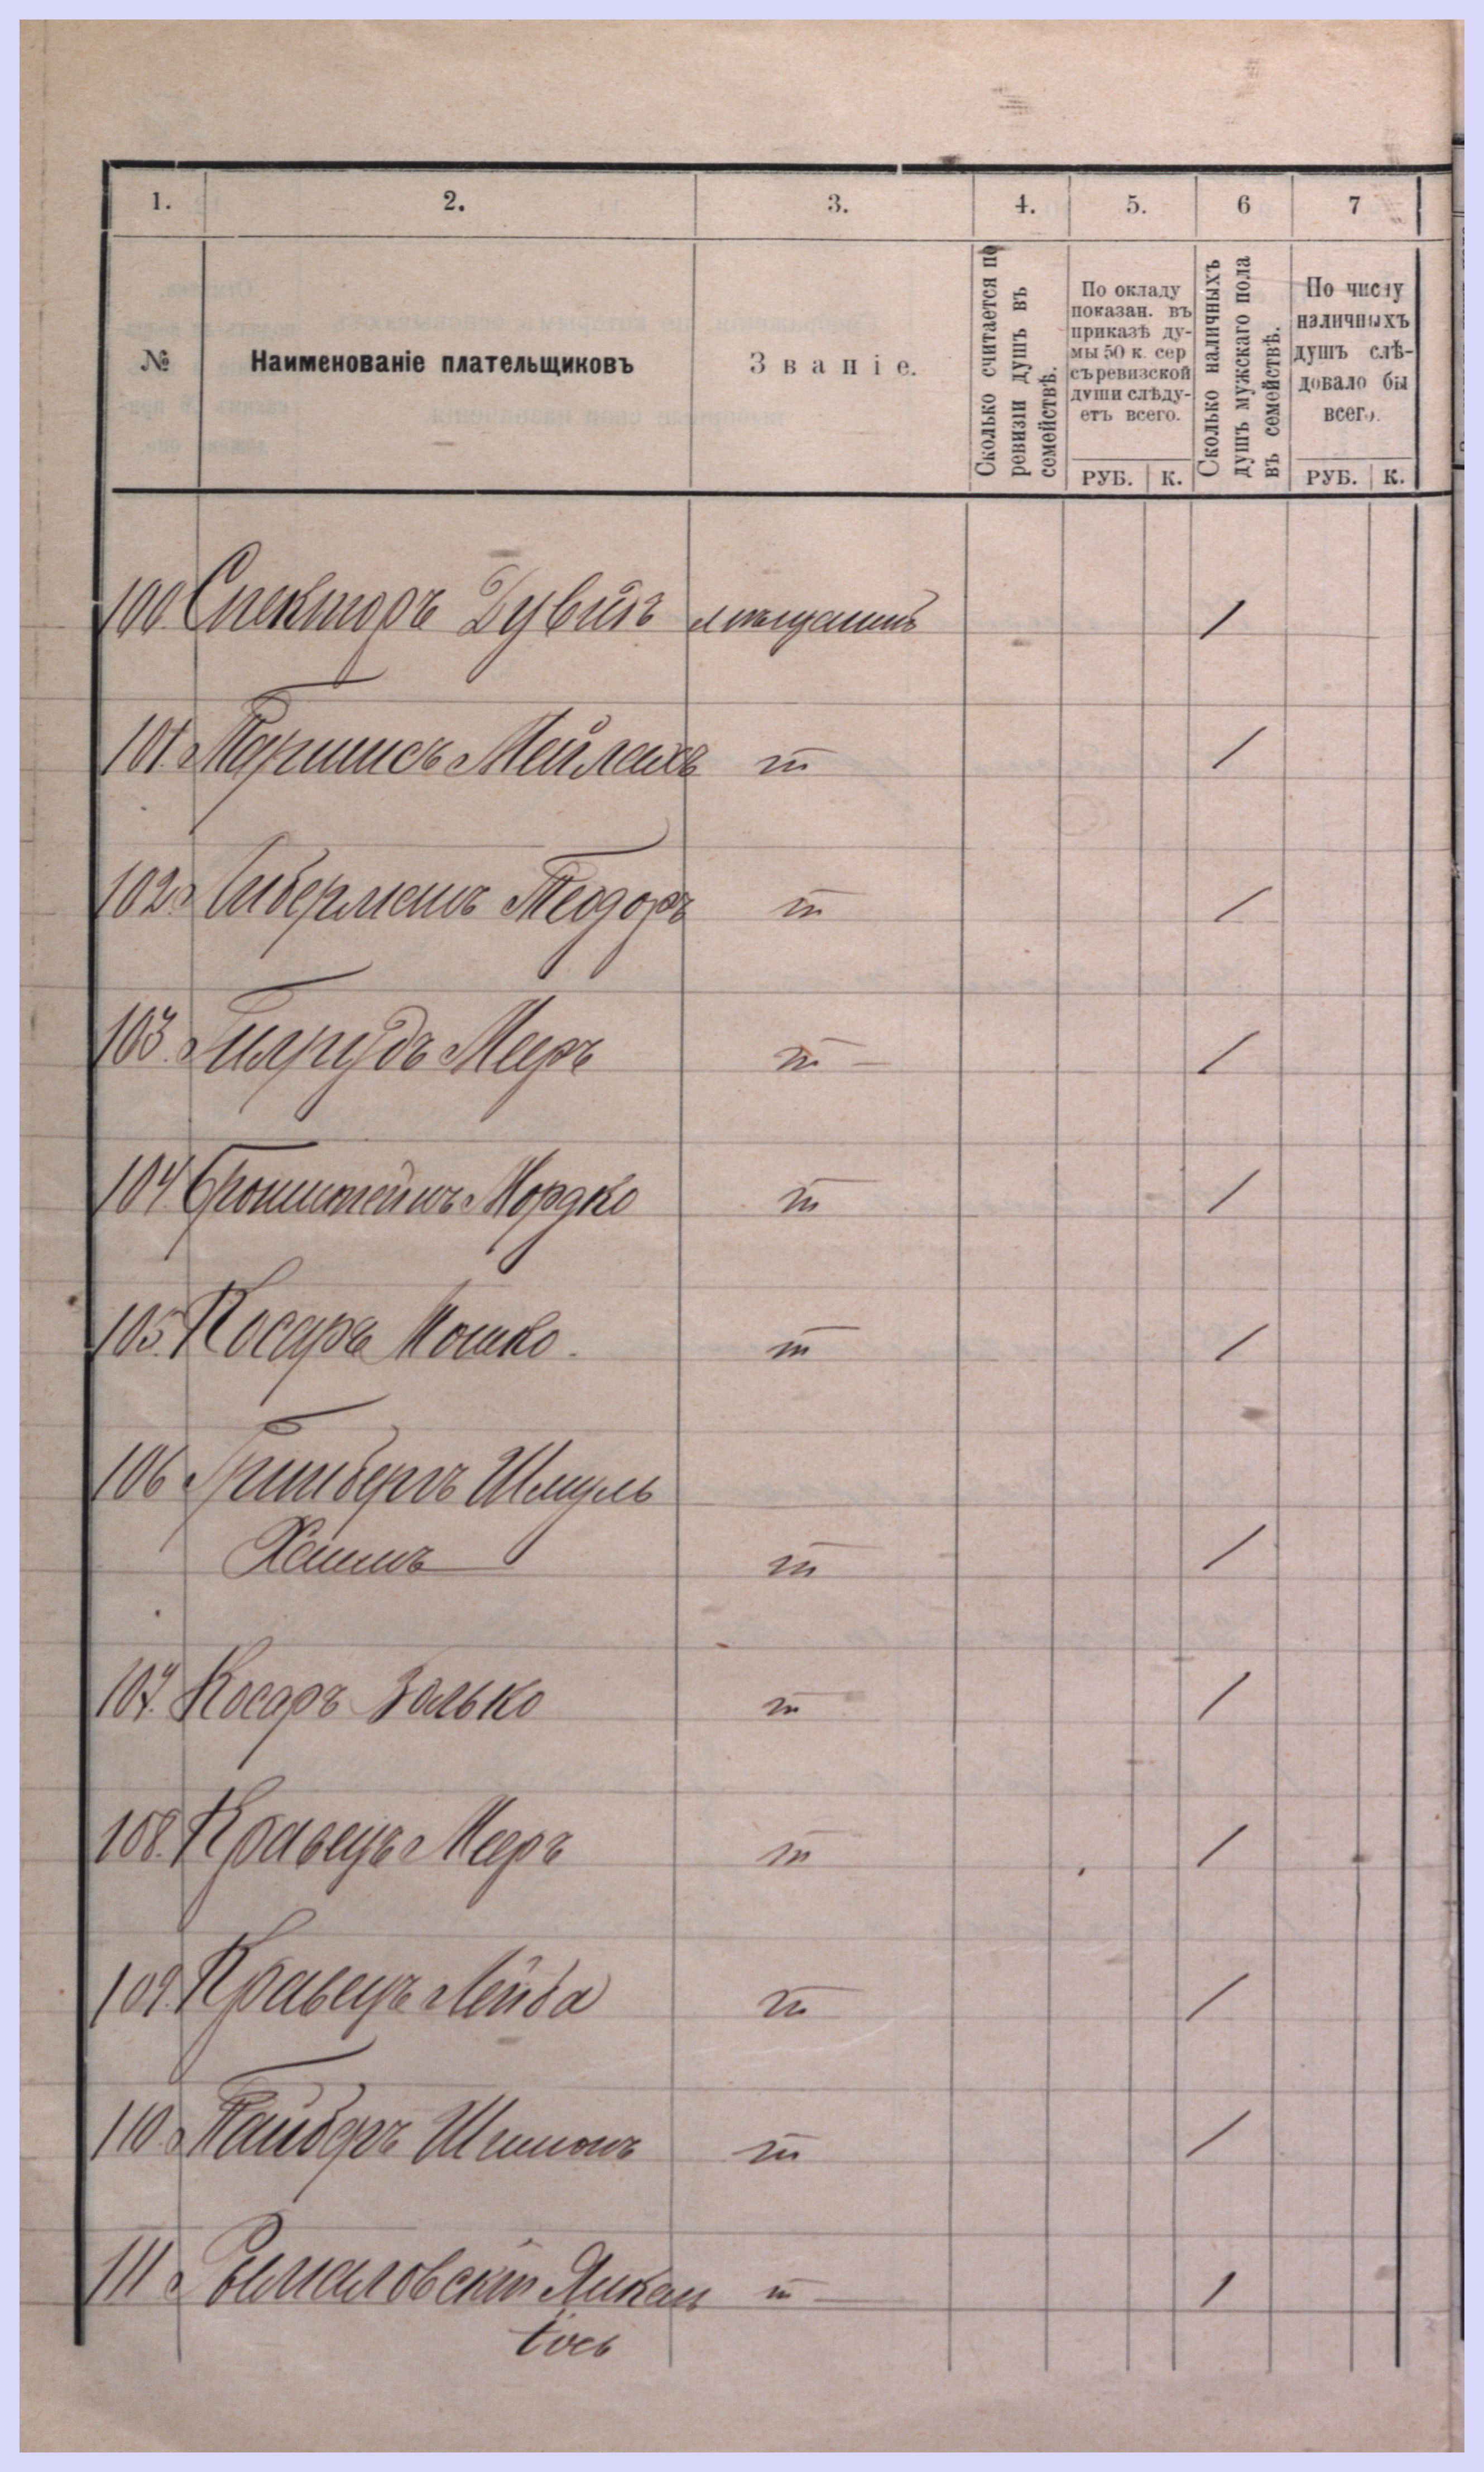 1. 2. 3. 4. 5. 6 7
№
Наименованіе плательщиковъ
Званіе.
Сколько считается по
ревизіи душъ въ
семействѣ.
По окладу
показан. въ
приказѣ ду-
мы 50 к. сер
съ ревизской
души слѣду-
етъ всего.
РУБ. К.
Сколько наличныхъ
душъ мужскаго пола
въ семействѣ.
По числу
наличныхъ
душъ слѣ-
довало бы
всего.
РУБ. К.
100. Спекторъ Дувидъ мѣщанинъ 1
101. Мейлахъ т 1
102. Либерманъ Теодоръ т 1
103. Мееръ т — 1
104 Бронштейнъ Мордко т 1
105. Косаръ Мошко. т 1
106 Гринбергъ Шмуль
Хаимъ т 1
107. Косаръ Волько т 1
108. Кравецъ Мееръ т 1
109. Кравецъ Лейба т 1
110. Шимонъ т 1
111 т — 1
Іось